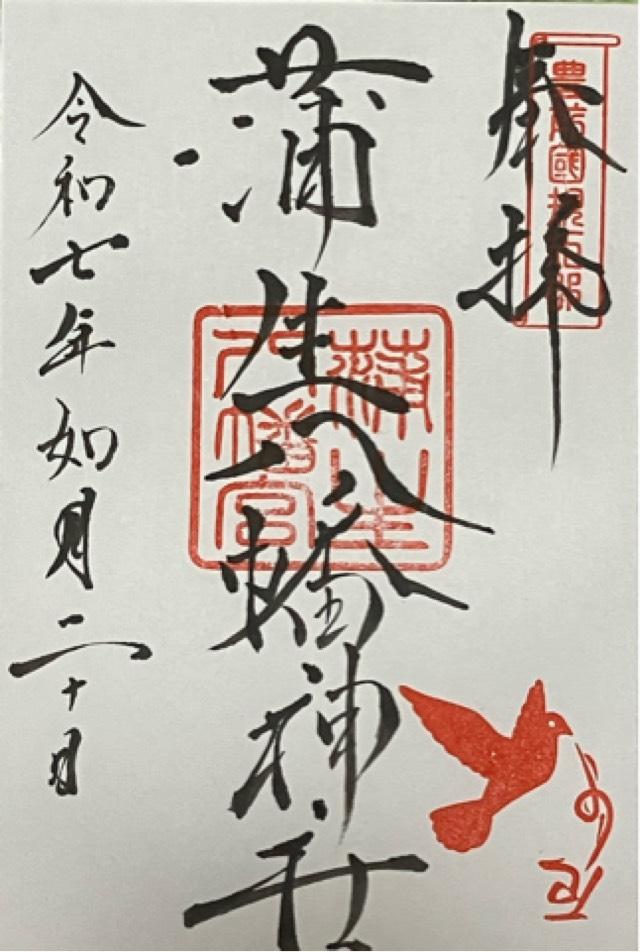 奉拝
豊前國規矩郡
蒲生八幡神社
蒲生八幡宮
令和七年如月二十日